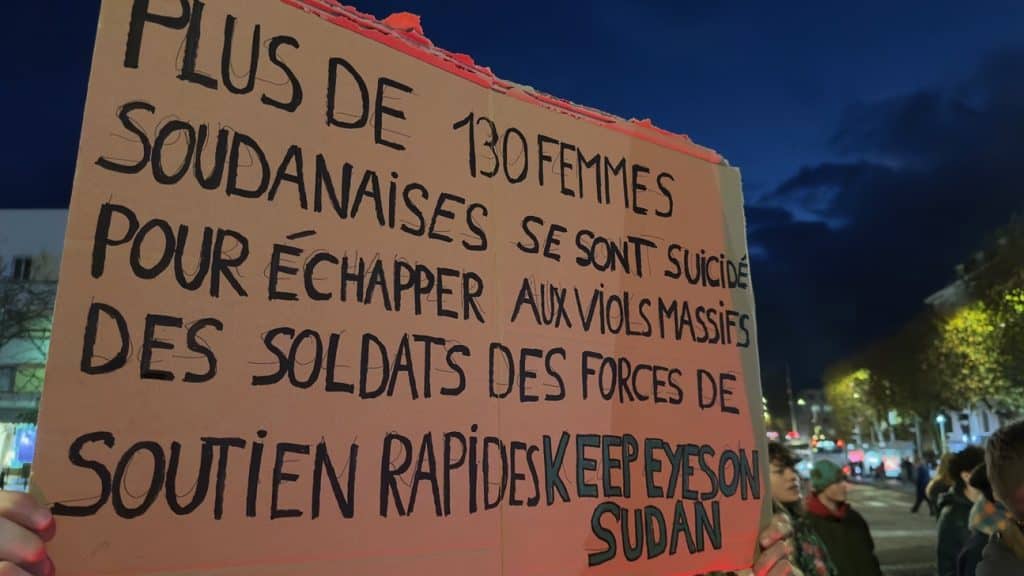 PLUS DE 130 FEMMES
SOUDANAISES SE SONT SUICIDÉ
POUR ÉCHAPPER AUX VIOLS MASSIFS
DES SOLDATS DES FORCES DE
SOUTIEN RAPIDES KEEP EYES ON
SUDAN